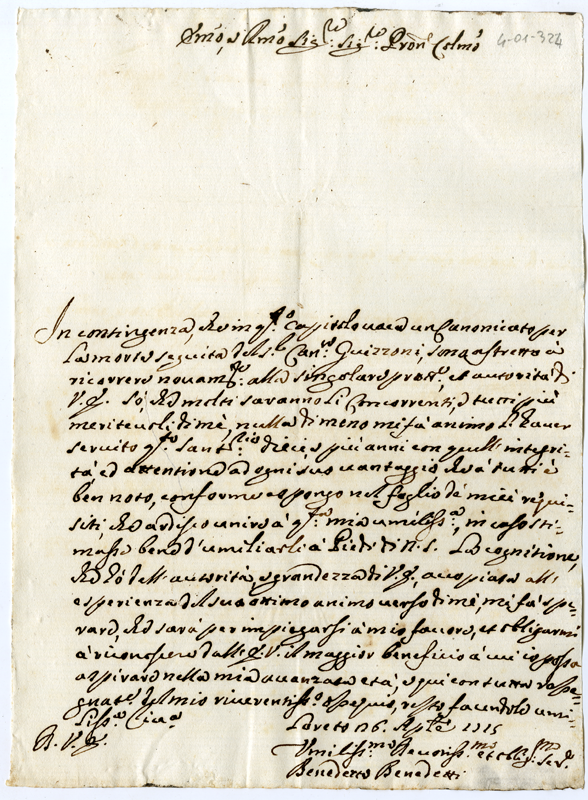 Emo, e Rmo Sig.re Sig.re Pron Colmo
4-01-324
In contingenza, che in q.sto Capitolo vaca un Canonicato per
la morte seguita del S.r Can.co Guizzoni, sono astretto à
ricorrere novam.te alla singolare prott.e, et autorità di
V. E. Sò, che molti saranno li Concorrenti, e tutti più
meritevoli di me, nulla di meno mi fà animo l'haver
servito q.sto Sant.rio dieci e più anni con quell'integri-
tà ed attentione ad ogni suo vantaggio che à tutti è
ben noto, conforme espongo nel foglio de miei requi-
siti, che ardisco unire à q.sta mia umiliss.a, in caso sti-
masse bene d'umiliarli à Piedi di N. S. La cognitione,
che hò dell'autorità, e grandezza di V. E., accopiata all'
esperienza del suo ottimo animo verso di me, mi fà spe-
rare, che sarà per impiegarsi à mio favore, et obligarmi
à riconoscere dall'E. V. il maggior beneficio à cui io possa
aspirare nella mia avanzata età, e qui con tutta rasse-
gnat.e del mio riverentiss.o ossequio, resto facendole umi-
liss.a Riv.a
D. V. E.
Loreto 26. Ap.le 1715
Umiliss.mo Devotiss.mo et Oblig.mo Se.re
Benedetto Benedetti